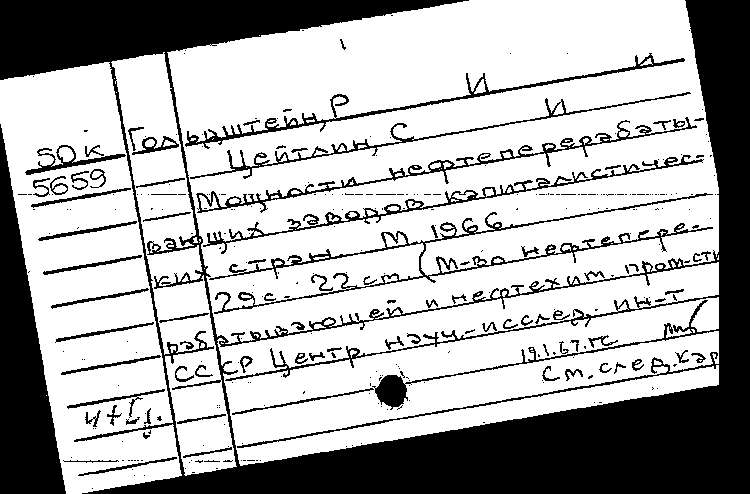 50к Гольдштейн, Р И И
5659 Цейтлин, С И
Мощности нефтеперерабаты-
вающих заводов капиталистичес-
ких стран. М, 1966.
29 с. 22 ст. (М-во нефтепере-
рабатывающей и нефтехим. пром-сти
СССР Центр. науч.-исслед. ин-т
19.1.67.
См. след. кар